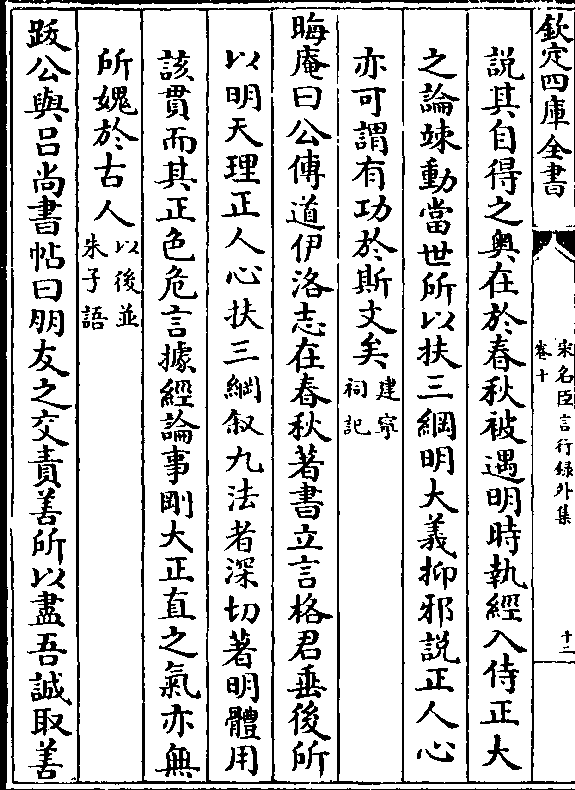 欽定四庫全書
宋名臣言行録外集
卷十
十三
説其自得之奥在於春秋被遇明時執經入侍正大
之論竦動當世所以扶三綱明大義抑邪説正人心
亦可謂有功於斯文矣建寧祠記
晦庵曰公傳道伊洛志在春秋著書立言格君垂後所
以明天理正人心扶三綱叙九法者深切著明體用
該貫而其正色危言據經論事剛大正直之氣亦無
所媿於古人以後並朱子語
跋公與吕尚書帖曰朋友之交責善所以盡吾誠取善